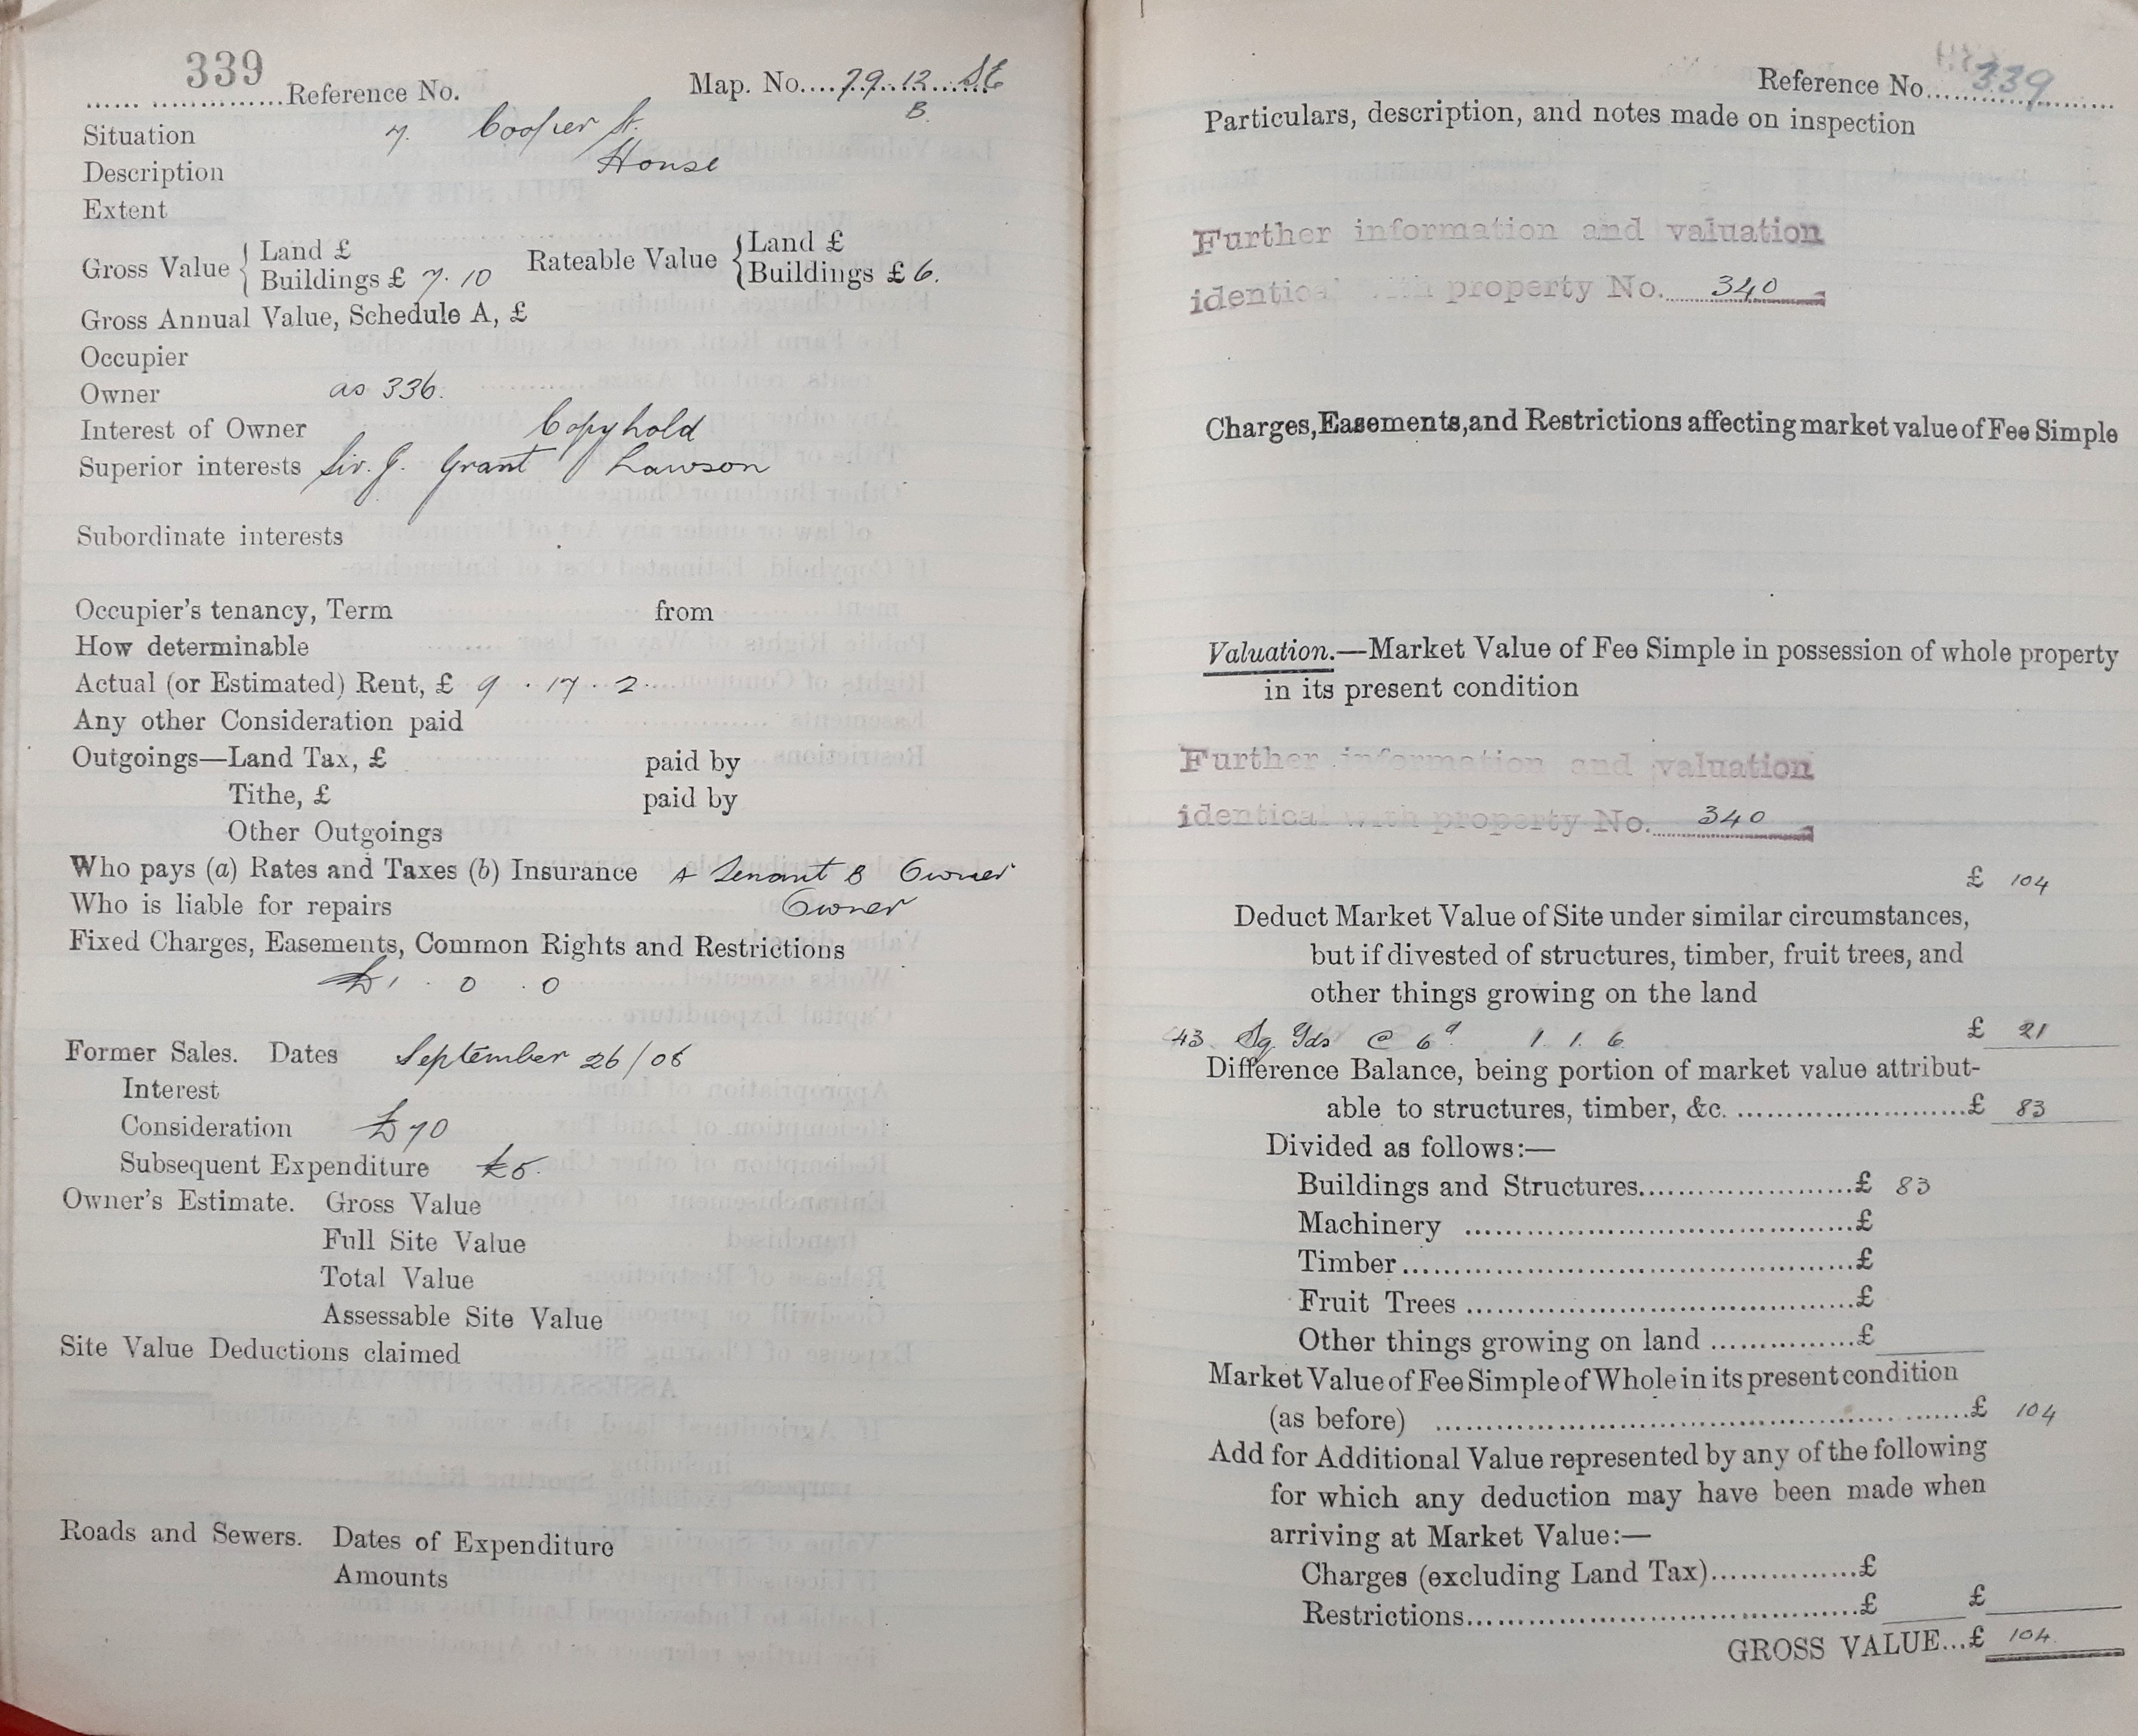 339
Reference No. Map. No. 79. 12. SE
B.
Situation 7. Cooper St.
Description House
Extent
Gross Value { Land £ Rateable Value { Land £
Buildings £ 7. 10 Buildings £ 6.
Gross Annual Value, Schedule A, £
Occupier
Owner as 336.
Interest of Owner Copyhold
Superior interests Sir. J. Grant Lawson
Subordinate interests
Occupier's tenancy, Term from
How determinable
Actual (or Estimated) Rent, £ 9 . 17 . 2
Any other Consideration paid
Outgoings—Land Tax, £ paid by
Tithe, £ paid by
Other Outgoings
Who pays (a) Rates and Taxes (b) Insurance A Tenant B Owner
Who is liable for repairs Owner
Fixed Charges, Easements, Common Rights and Restrictions
£1 . 0 . 0
Former Sales. Dates September 26/08
Interest
Consideration £70
Subsequent Expenditure £5.
Owner's Estimate. Gross Value
Full Site Value
Total Value
Assessable Site Value
Site Value Deductions claimed
Roads and Sewers. Dates of Expenditure
Amounts
Reference No. 339
Particulars, description, and notes made on inspection
Further information and valuation
identical with property No. 340
Charges, Easements, and Restrictions affecting market value of Fee Simple
Valuation.—Market Value of Fee Simple in possession of whole property
in its present condition
Further information and valuation
identical with property No. 340
£ 104
Deduct Market Value of Site under similar circumstances,
but if divested of structures, timber, fruit trees, and
other things growing on the land
43 Sq Yds @ 6d 1. 1. 6 £ 21
Difference Balance, being portion of market value attribut-
able to structures, timber, &c. £ 83
Divided as follows:—
Buildings and Structures £ 83
Machinery £
Timber £
Fruit Trees £
Other things growing on land £
Market Value of Fee Simple of Whole in its present condition
(as before) £ 104
Add for Additional Value represented by any of the following
for which any deduction may have been made when
arriving at Market Value:—
Charges (excluding Land Tax) £
Restrictions £ £
GROSS VALUE...£ 104